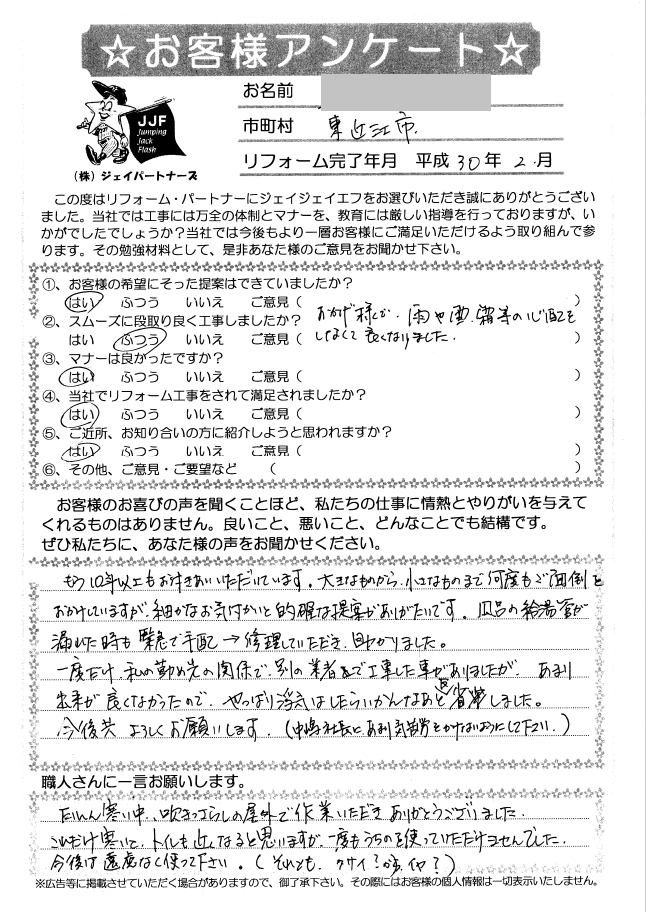 ☆お客様アンケート☆
お名前
市町村 東近江市
リフォーム完了年月 平成30年2月
JJF
Jumping
Jack
Flash
(株)ジェイパートナーズ
この度はリフォーム・パートナーにジェイジェイエフをお選びいただき誠にありがとうござい
ました。当社では工事には万全の体制とマナーを、教育には厳しい指導を行っておりますが、い
かがでしたでしょうか?当社では今後もより一層お客様にご満足いただけるよう取り組んで参
ります。その勉強材料として、是非あなた様のご意見をお聞かせ下さい。
①、お客様の希望にそった提案はできていましたか?
はい ふつう いいえ ご意見( おかげ様で、雨や雪、霜等の心配を )
②、スムーズに段取り良く工事しましたか?
はい ふつう いいえ ご意見( しなくて良くなりました。
③、マナーは良かったですか?
はい ふつう いいえ ご意見( )
④、当社でリフォーム工事をされて満足されましたか?
はい ふつう いいえ ご意見( )
⑤、ご近所、お知り合いの方に紹介しようと思われますか?
はい ふつう いいえ ご意見( )
⑥、その他、ご意見・ご要望など ( )
お客様のお喜びの声を聞くことほど、私たちの仕事に情熱とやりがいを与えて
くれるものはありません。良いこと、悪いこと、どんなことでも結構です。
ぜひ私たちに、あなた様の声をお聞かせください。
もう10年以上もお付きあいいただいています。大きなものから、小さなものまで何度もご面倒を
おかけしていますが、細かなお気付かいと的確な提案がありがたいです。風呂の給湯管が
漏れた時も緊急で手配→修理していただき、助かりました。
一度だけ、私の勤め先の関係で、別の業者で工事した事がありましたが、あまり
出来が良くなかったので、やっぱり浮気はしたらいかんなあと反省しました。
今後共よろしくお願いします。(中嶋社長に、あまり気苦労をかけないようにして下さい。)
職人さんに一言お願いします。
たいへん寒い中、吹きっさらしの屋外で作業いただきありがとうございました。
これだけ寒いと、トイレも近くなると思いますが、一度もうちのを使っていただけませんでした。
今後は遠慮なく使って下さい。(それとも、クサイ?からイヤ?)
※広告等に掲載させていただく場合がありますので、御了承下さい。その際にはお客様の個人情報は一切表示いたしません。